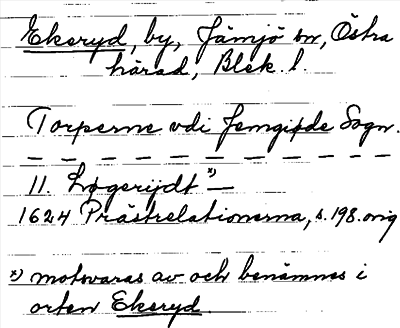 Ekeryd, by, Jämjö sn, Östra
härad, Blek. l.
Torperne vdi Jemgiøde Sogn.
— — — — — — — — — — — —
11. Løgerijdt *) —
1624 Prästrelationerna, s. 198. orig
*) motsvaras av och benämnes i
orten Ekeryd.